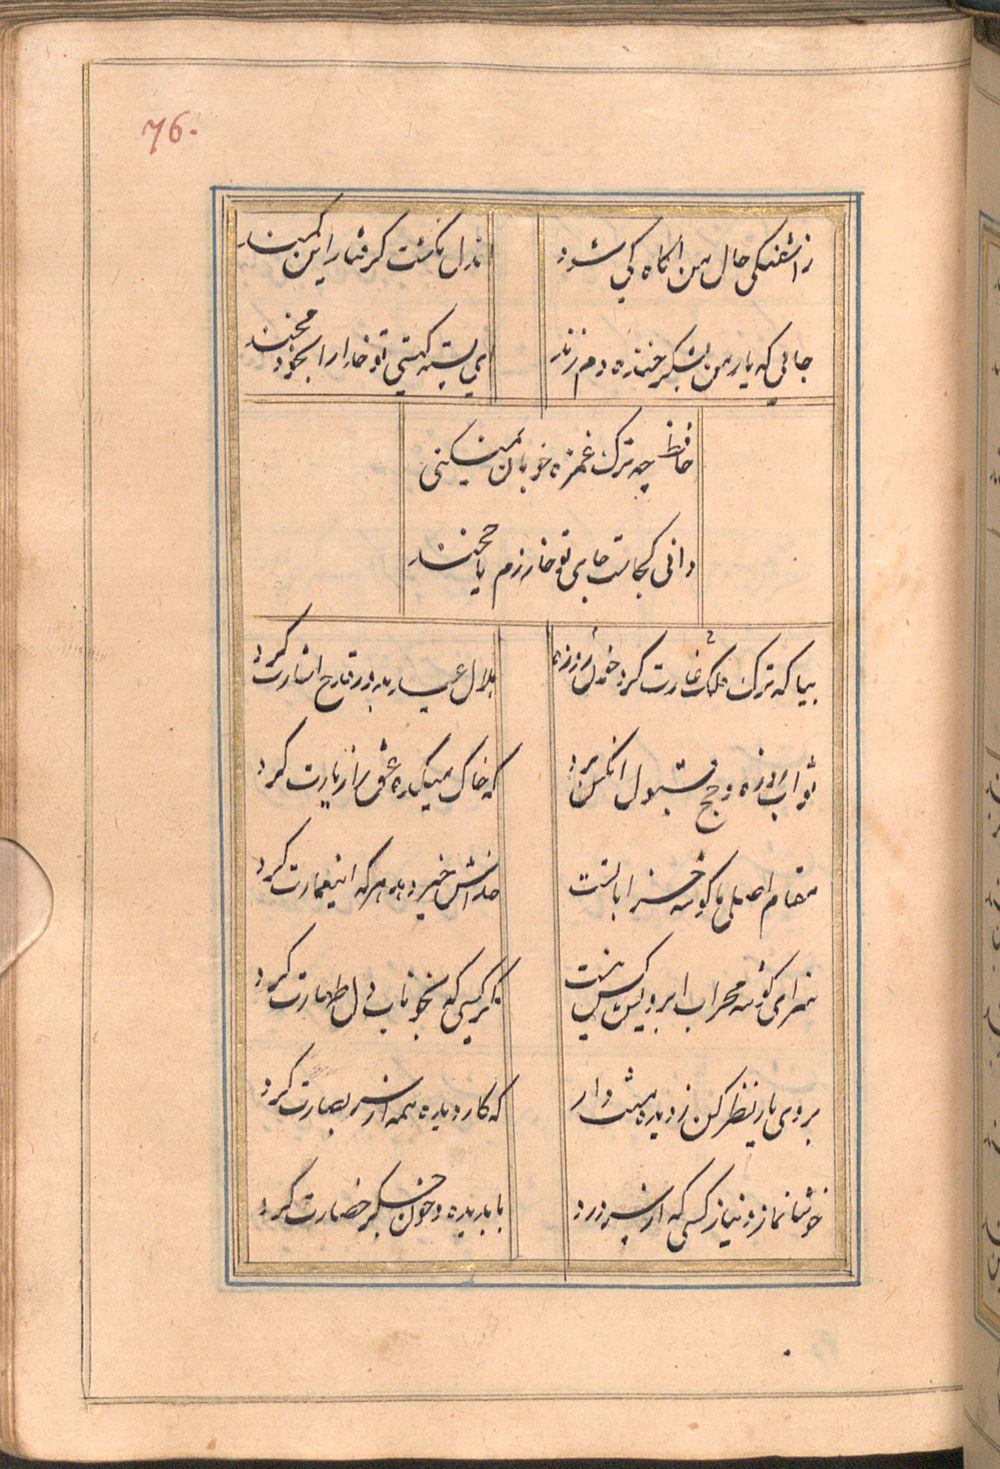 76.
ز آشفتگی حال من آگاه کی شود
آنرا دل نگشت گرفتار این کمند
جائی که یار من بشکر خنده دم زند
ای پسته کیستی تو خدا را بخود مخند
حافظ چو ترک غمزه خوبان نمیکنی
دانی کجاست جای تو خوارزم یا خجند
بیا که ترک فلک خوان روزه غارت کرد
هلال عید بدور قدح اشارت کرد
ثواب روزه و حج قبول آنکس برد
که خاک میکده عشق را زیارت کرد
مقام اصلی ما گوشه خراباتست
خداش خیر دهد هر که این عمارت کرد
نماز در گوشه محراب ابروی
مگر کسی که بخوناب دل طهارت کرد
بروی یار نظر کن ز دیده منت دار
که کار دیده همه از سر بصارت کرد
خوشا نماز و نیاز کسی که از سر درد
بآب دیده و خون جگر طهارت کرد